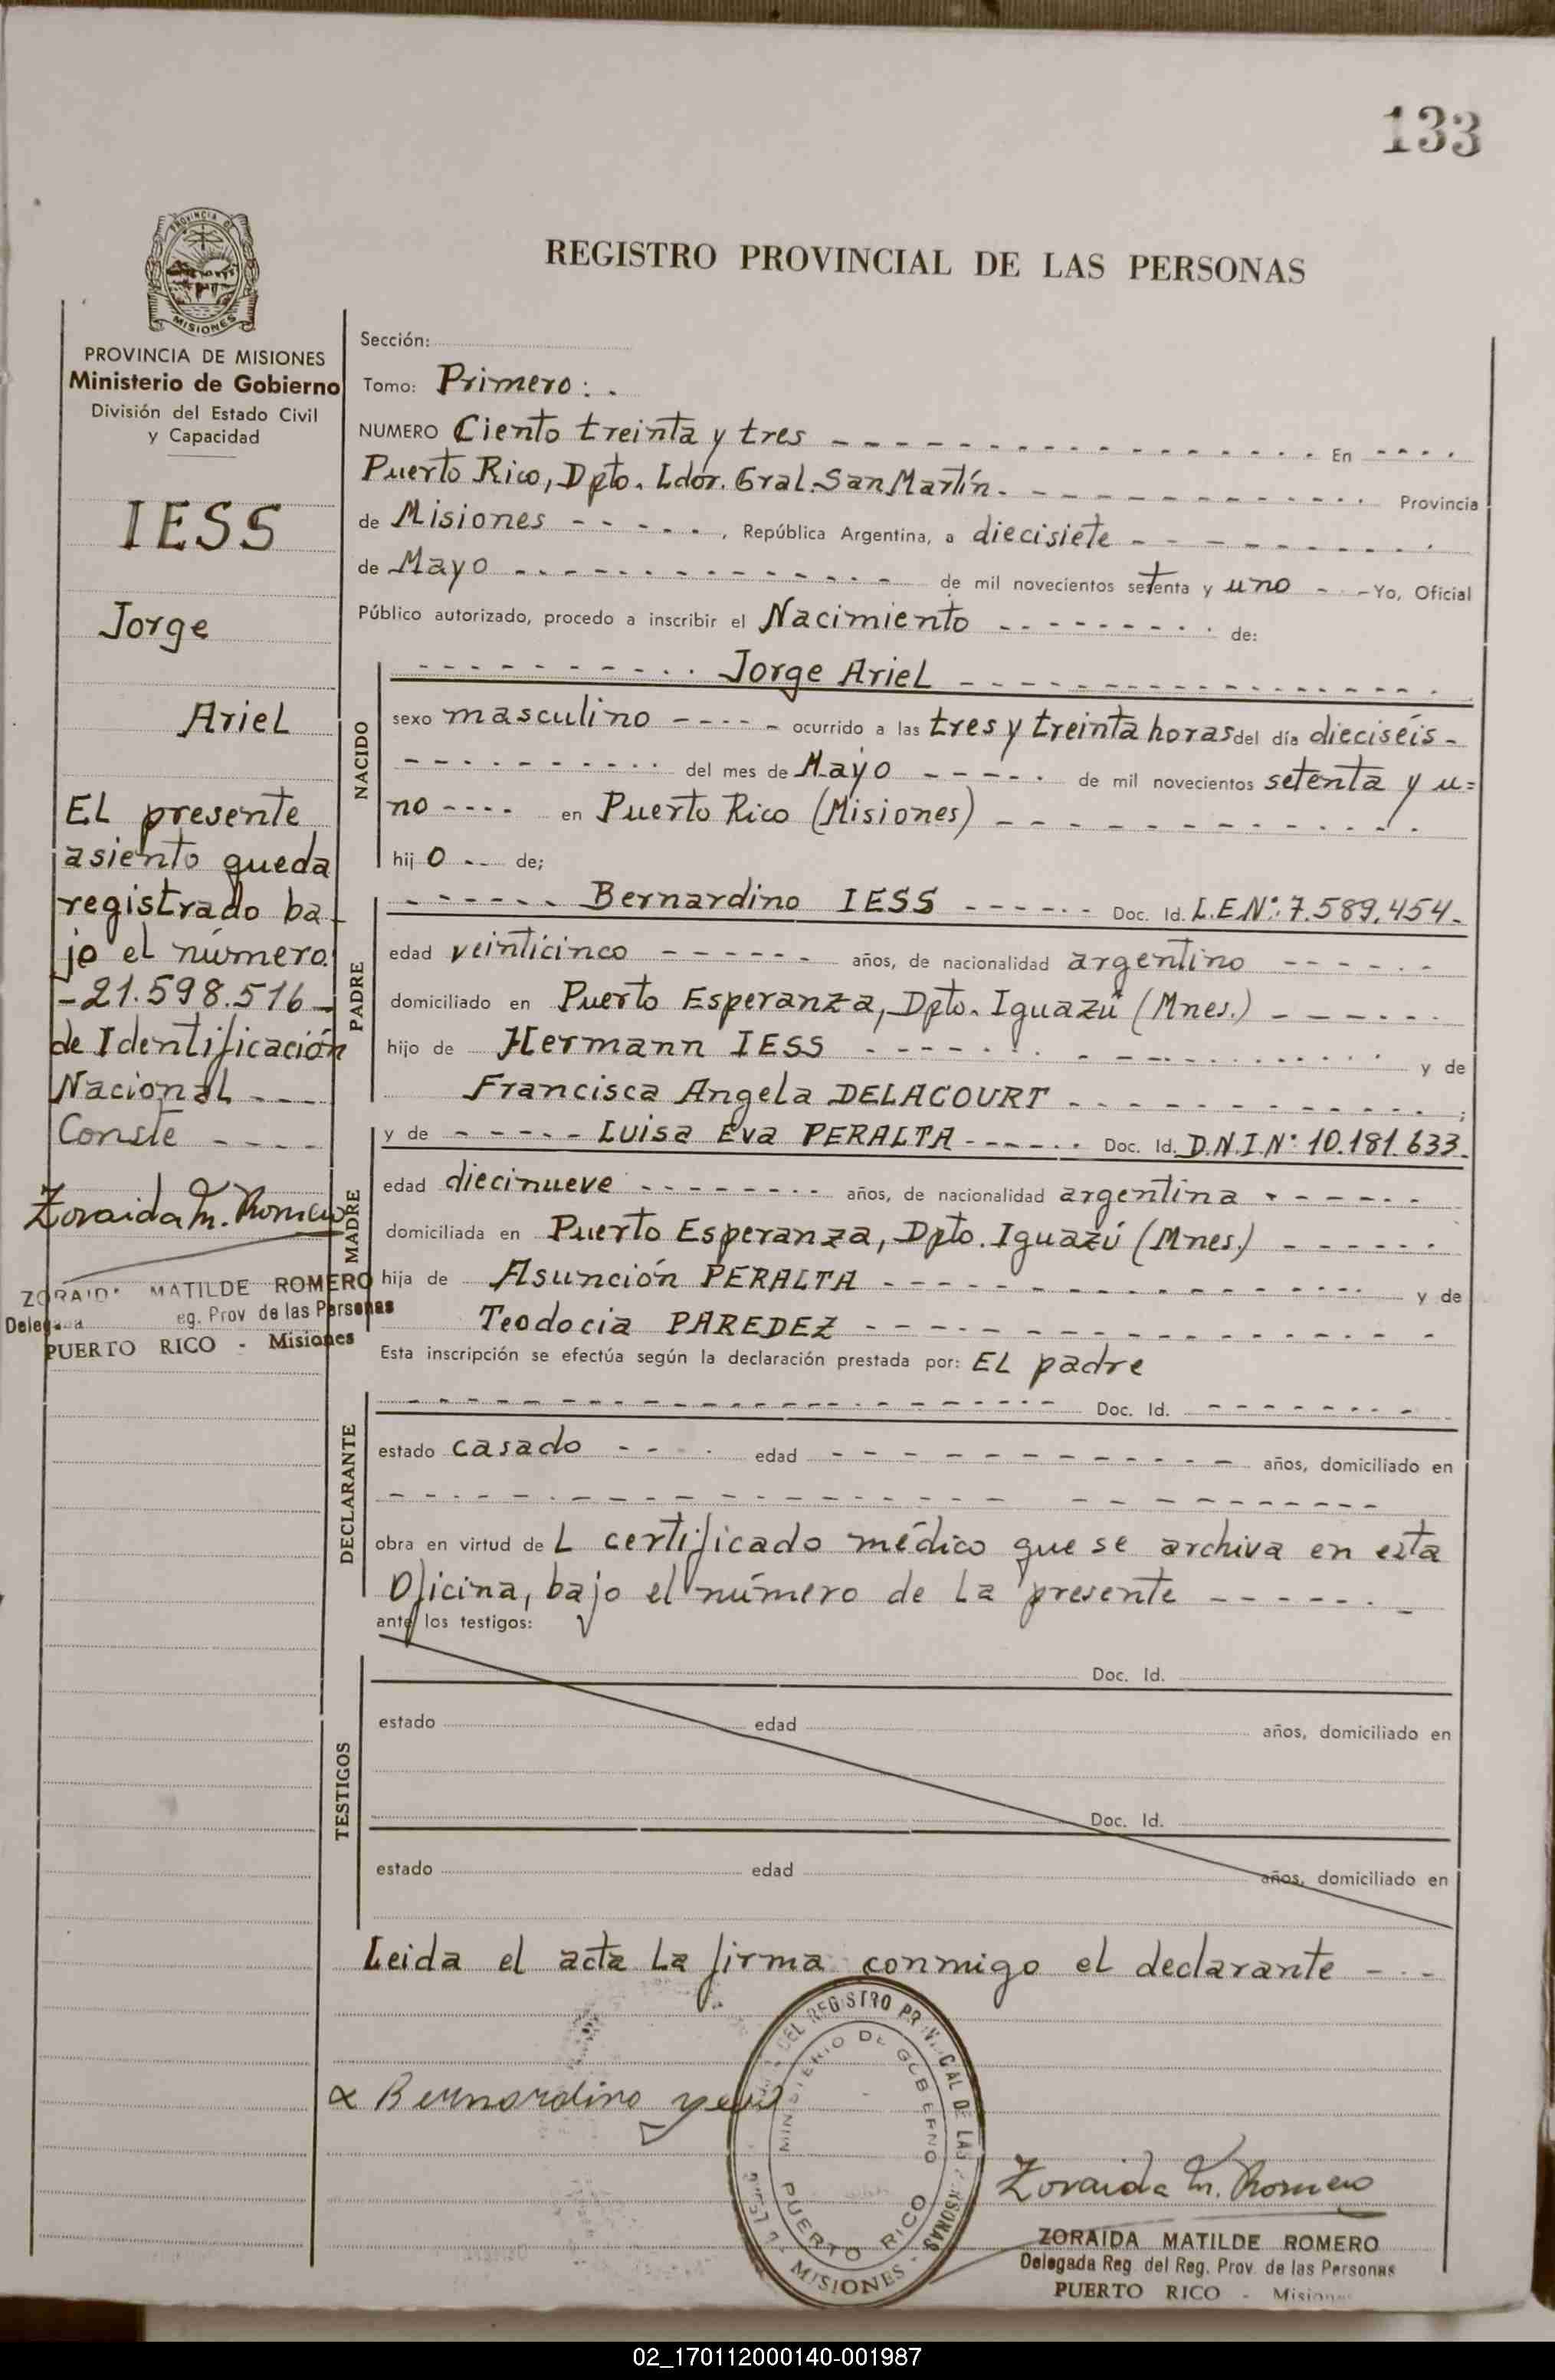 133
PROVINCIA DE
MISIONES
REGISTRO PROVINCIAL DE LAS PERSONAS
PROVINCIA DE MISIONES
Ministerio de Gobierno
División del Estado Civil
y Capacidad
IESS
Jorge
Ariel
El presente
asiento queda
registrado ba-
jo el número
-21.598.516-
de Identificación
Nacional ---
Conste ----
Zoraida M. Romero
ZORAIDA MATILDE ROMERO
Delegada Reg. Prov de las Personas
PUERTO RICO - Misiones
Sección:
Tomo: Primero: .
NUMERO Ciento treinta y tres - - - - En - - - -
Puerto Rico, Dpto. Ldor. Gral. San Martín. - - - - Provincia
de Misiones - - - - -, República Argentina, a diecisiete - - - -
de Mayo - - - - de mil novecientos setenta y uno - - Yo, Oficial
Público autorizado, procedo a inscribir el Nacimiento - - - - de:
NACIDO
- - - - Jorge Ariel - - - -
sexo masculino - - - - - ocurrido a las tres y treinta horas del día dieciséis -
- - - - del mes de Mayo - - - - - de mil novecientos setenta y u=
no - - - - en Puerto Rico (Misiones) - - - -
hij o -- de;
PADRE
- - - - Bernardino IESS - - - - Doc. Id. L.E.Nº: 7.589.454-
edad veinticinco - - - - años, de nacionalidad argentino - - - -
domiciliado en Puerto Esperanza, Dpto. Iguazú (Mnes.) - - - -
hijo de Hermann IESS - - - - y de
Francisca Angela DELACOURT - - - - ;
MADRE
y de - - - - Luisa Eva PERALTA - - - - Doc. Id. D.N.I.Nº 10.181.633.
edad diecinueve - - - - años, de nacionalidad argentina - - - -
domiciliada en Puerto Esperanza, Dpto. Iguazú (Mnes.) - - - -
hija de Asunción PERALTA - - - - y de
Teodocia PAREDEZ - - - -
Esta inscripción se efectúa según la declaración prestada por: El padre
DECLARANTE
- - - - Doc. Id. - - - -
estado casado - - - - edad - - - - años, domiciliado en
- - - -
obra en virtud de l certificado médico que se archiva en esta
Oficina, bajo el número de la presente - - - -
ante los testigos:
TESTIGOS
Doc. Id.
estado edad años, domiciliado en
Doc. Id.
estado edad años, domiciliado en
Leida el acta la firma conmigo el declarante - - -
DEL REGISTRO PROVINCIAL DE LAS PERSONAS
MINISTERIO DE GOBIERNO
PUERTO RICO
MISIONES
Bernardino
Zoraida M. Romero
ZORAIDA MATILDE ROMERO
Delegada Reg. del Reg. Prov. de las Personas
PUERTO RICO - Misiones
02_170112000140-001987